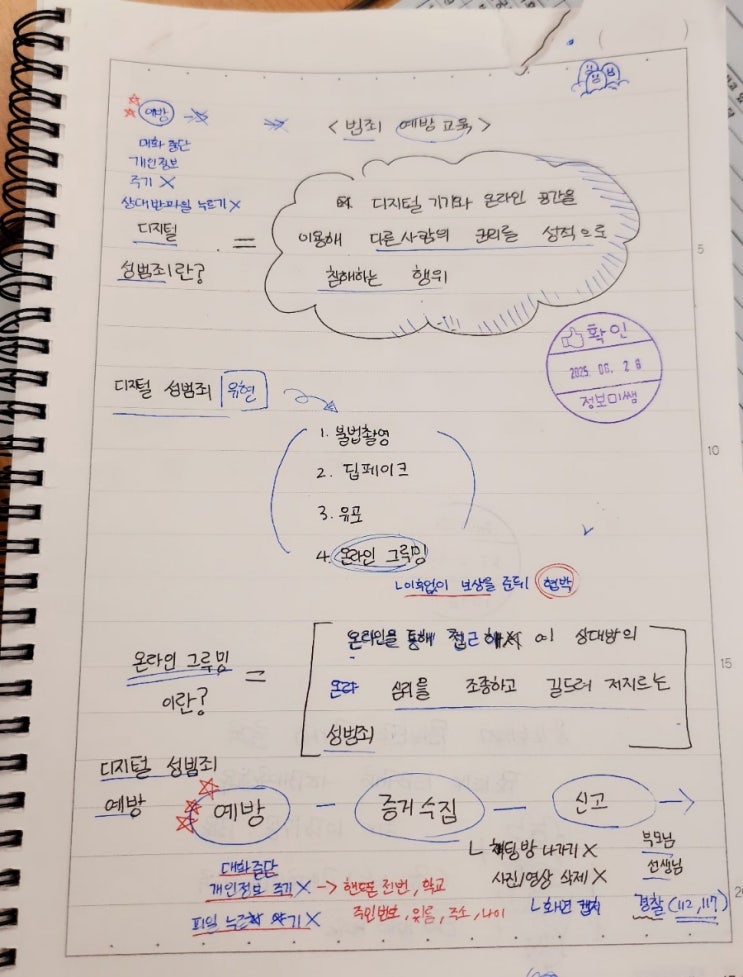 예방
< 범죄 예방 교육 >
대화 중단
개인정보
주기 X
상대방파일 누르기 X
디지털
성범죄란?
=
디지털 기기와 온라인 공간을
이용해 다른 사람의 권리를 성적으로
침해하는 행위
확인
2025. 06. 2 8
정보미쌤
5
디지털 성범죄 유현
1. 불법촬영
10
2. 딥페이크
3. 유포
4. 온라인 그루밍
ㄴ이유없이 보상을 준뒤 협박
온라인 그루밍
이란?
=
온라인을 통해 접근해 상대방의
심리를 조종하고 길드려 저지르는
성범죄
15
디지털 성범죄
예방
예방 – 증거 수집 – 신고 →
ㄴ 채팅방 나가기 X
사진/영상 삭제 X
ㄴ화면 캡쳐
부모님
선생님
경찰 (112, 117)
대화중단
개인정보 주기 X → 핸드폰 전번, 학교
주민번호, 이름, 주소, 나이
파일 누르기 X
20